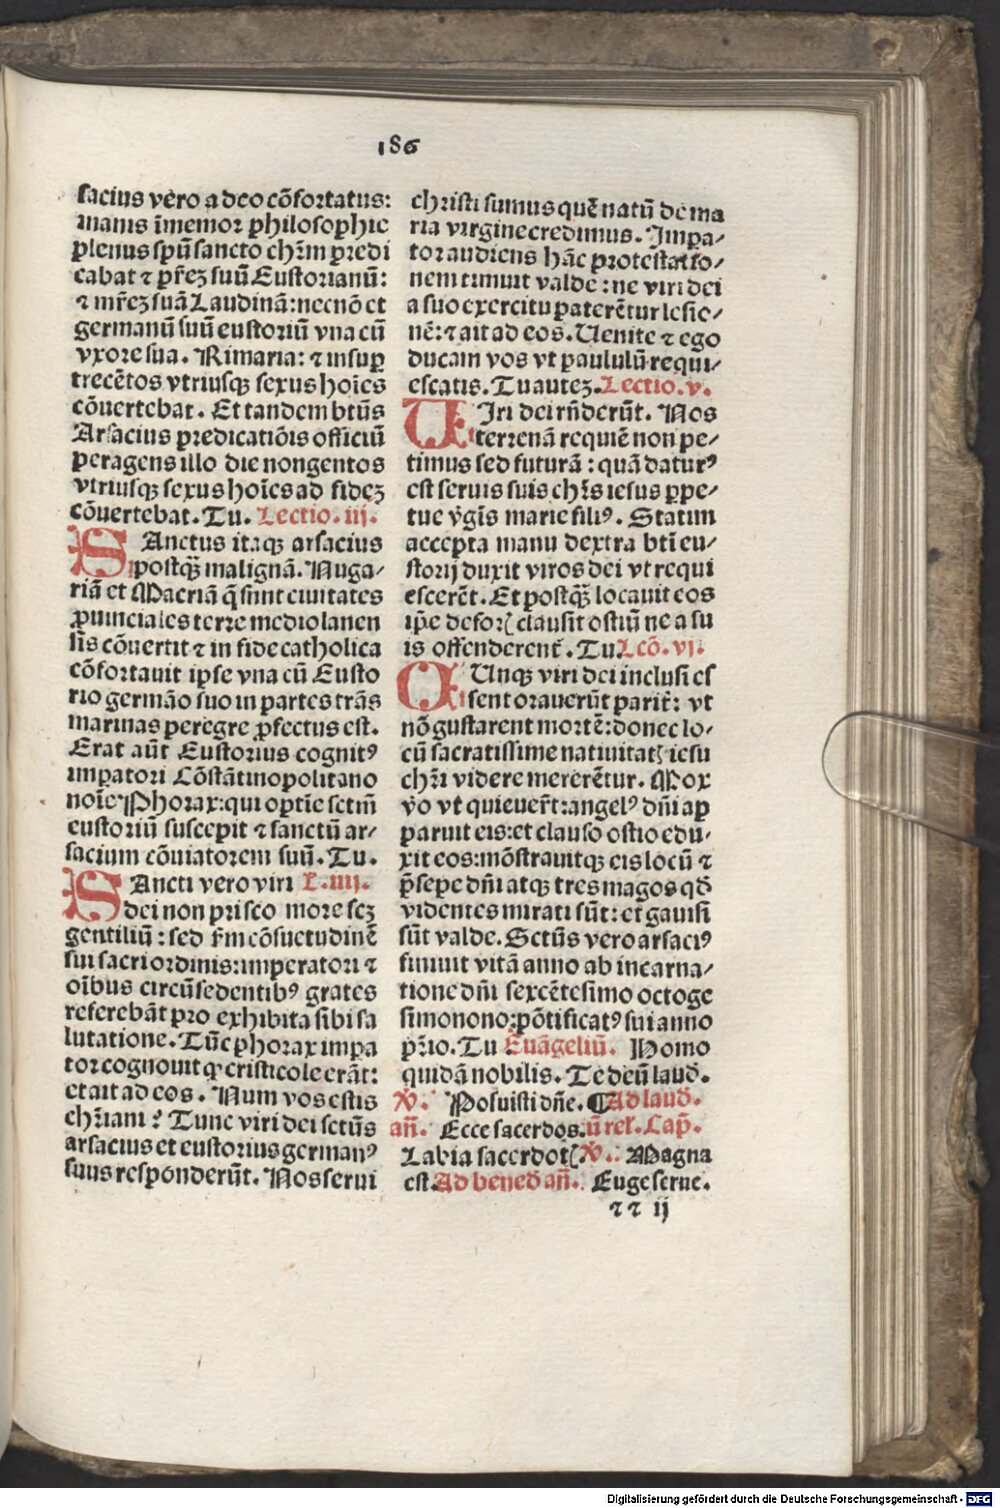 186
sacius vero adeo cõfortatus:
manis īmemor philosophie
plenus spũ sancto chr̃m predi
cabat ⁊ pr̃eꝫ suũ Eustorianũ:
⁊ mr̃eꝫ suã Laudinã: necnõ et
germanũ suũ eustoriũ vna cũ
vxore sua. Rimaria: ⁊ insup̱
trecẽtos vtriusqꝫ sexus hoĩes
cõuertebat. Et tandem btũs
Arsacius predicatiõis officiũ
peragens illo die nongentos
vtriusqꝫ sexus hoĩes ad fideꝫ
cõuertebat. Tu. Lectio. iij.
SAnctus itaqꝫ arsacius
postqꝫ̃ malignã. Nuga-
riã et Macriã q̃ sunt ciuitates
ꝓuinciales terre mediolanen
sis cõuertit ⁊ in fide catholica
cõfortauit ipse vna cũ Eusto
rio germão suo in partes trãs
marinas peregre ꝓfectus est.
Erat aũt Eustorius cognitꝰ
imꝑatori Cõstãtinopolitano
noĩe Phorax: qui optĩe sctm̃
eustoriũ suscepit ⁊ sanctũ ar-
sacium cõuiatorem suũ. Tu.
SAncti vero viri L. iiij.
dei non prisco more scꝫ
gentiliũ: sed ẜm cõsuetudinẽ
sui sacri ordinis: imperatori ⁊
oĩbus circũsedentibꝰ grates
referebãt pro exhibita sibi sa
lutatione. Tũc phorax impa
tor cognouit ꝙ cristicole erãt:
et ait ad eos. Num vos estis
chr̃iani? Tunc viri dei sctũs
arsacius et eustorius germanꝰ
suus responderũt. Nos serui
christi sumus quẽ natũ de ma
ria virgine credimus. Impa-
tor audiens hãc protestatio-
nem timuit valde: ne viri dei
a suo exercitu paterẽtur lesio-
nẽ: ⁊ ait ad eos. Uenite ⁊ ego
ducam vos vt paululũ requi-
escatis. Tu auteꝫ. Lectio. v.
UIri dei rñderũt. Nos
terrenã requiẽ non pe-
timus sed futurã: quã daturꝰ
est seruis suis chr̃s iesus ꝑpe-
tue v̾gĩs marie filiꝰ. Statim
accepta manu dextra bti eu-
storij duxit viros dei vt requi
escerẽt. Et postqꝫ̃ locauit eos
ip̃e deforꝭ clausit ostiũ ne a su
is offenderent̃. Tu. Lcõ. vj.
CUnqꝫ viri dei inclusi es
sent orauerũt parit̃: vt
nõ gustarent mortẽ: donec lo-
cũ sacratissime natiuitatꝭ iesu
chr̃i videre mererẽtur. Mox
v̾o vt quieuer̃t: angelꝰ dñi ap
paruit eis: et clauso ostio edu-
xit eos: mõstrauitqꝫ eis locũ ⁊
p̃sepe dñi atqꝫ tres magos qđ
videntes mirati sũt: et gauisi
sũt valde. Sctũs vero arsaciꝰ
finiuit vitã anno ab incarna-
tione dñi sexcẽtesimo octoge
simonono: põtificatꝰ sui anno
pr̃io. Tu Euãgeliũ. Homo
quidã nobilis. Te deũ laud̾.
℣. Posuisti dñe. ¶Ad laud̾.
añ. Ecce sacerdos. ũ rel. Cap̃.
Labia sacerdotꝭ. ℣. Magna
est. Ad bened̾ añ. Euge serue.
⁊ ⁊ ij
Digitalisierung gefördert durch die Deutsche Forschungsgemeinschaft - DFG